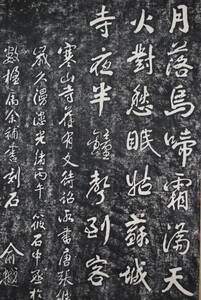 月落烏啼霜滿天
火對愁眠姑蘇城
寺夜半鐘聲到客
寒山寺舊有文待詔所書唐張繼
歲久漫漶光緒丙午筱石中丞於
數楹屬余補書刻石 俞樾